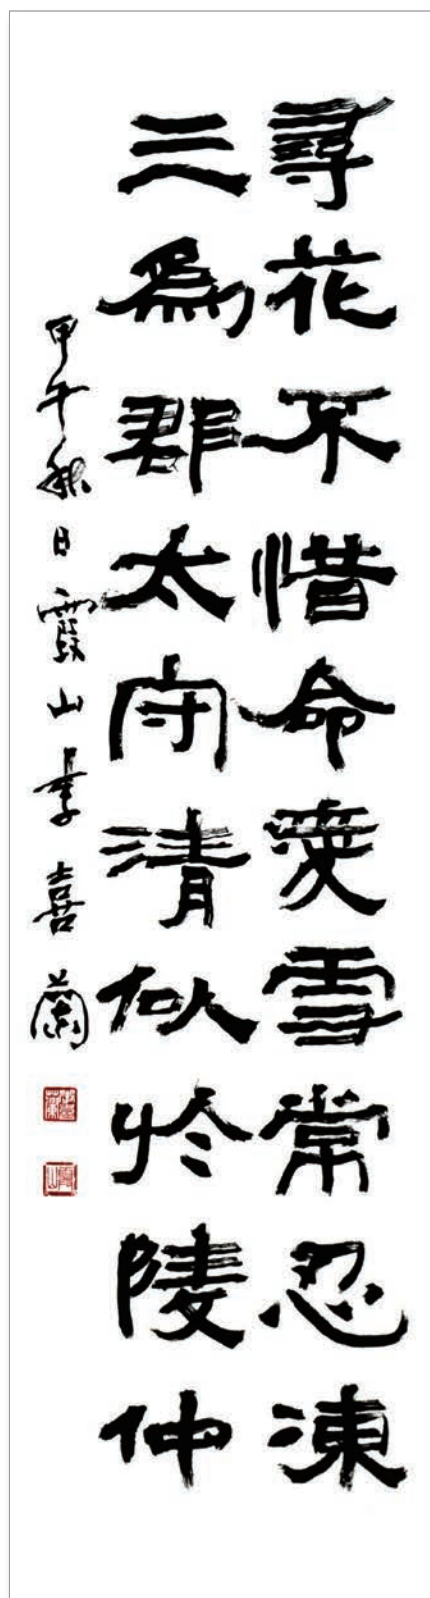 尋花不惜命愛雪常忍凍
三爲郡太守清似於陵仲
甲午秋日霞山李喜蘭